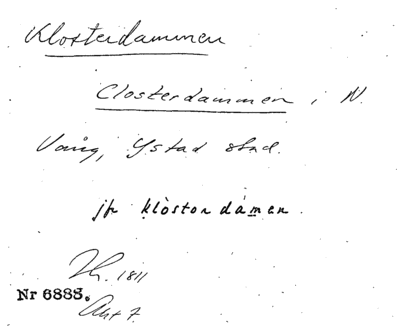 Klosterdammen
Closterdammen i N.
Vång, Ystad stad.
jfr klòstərdámen.
1811
Nr 6888.
Akt 7.